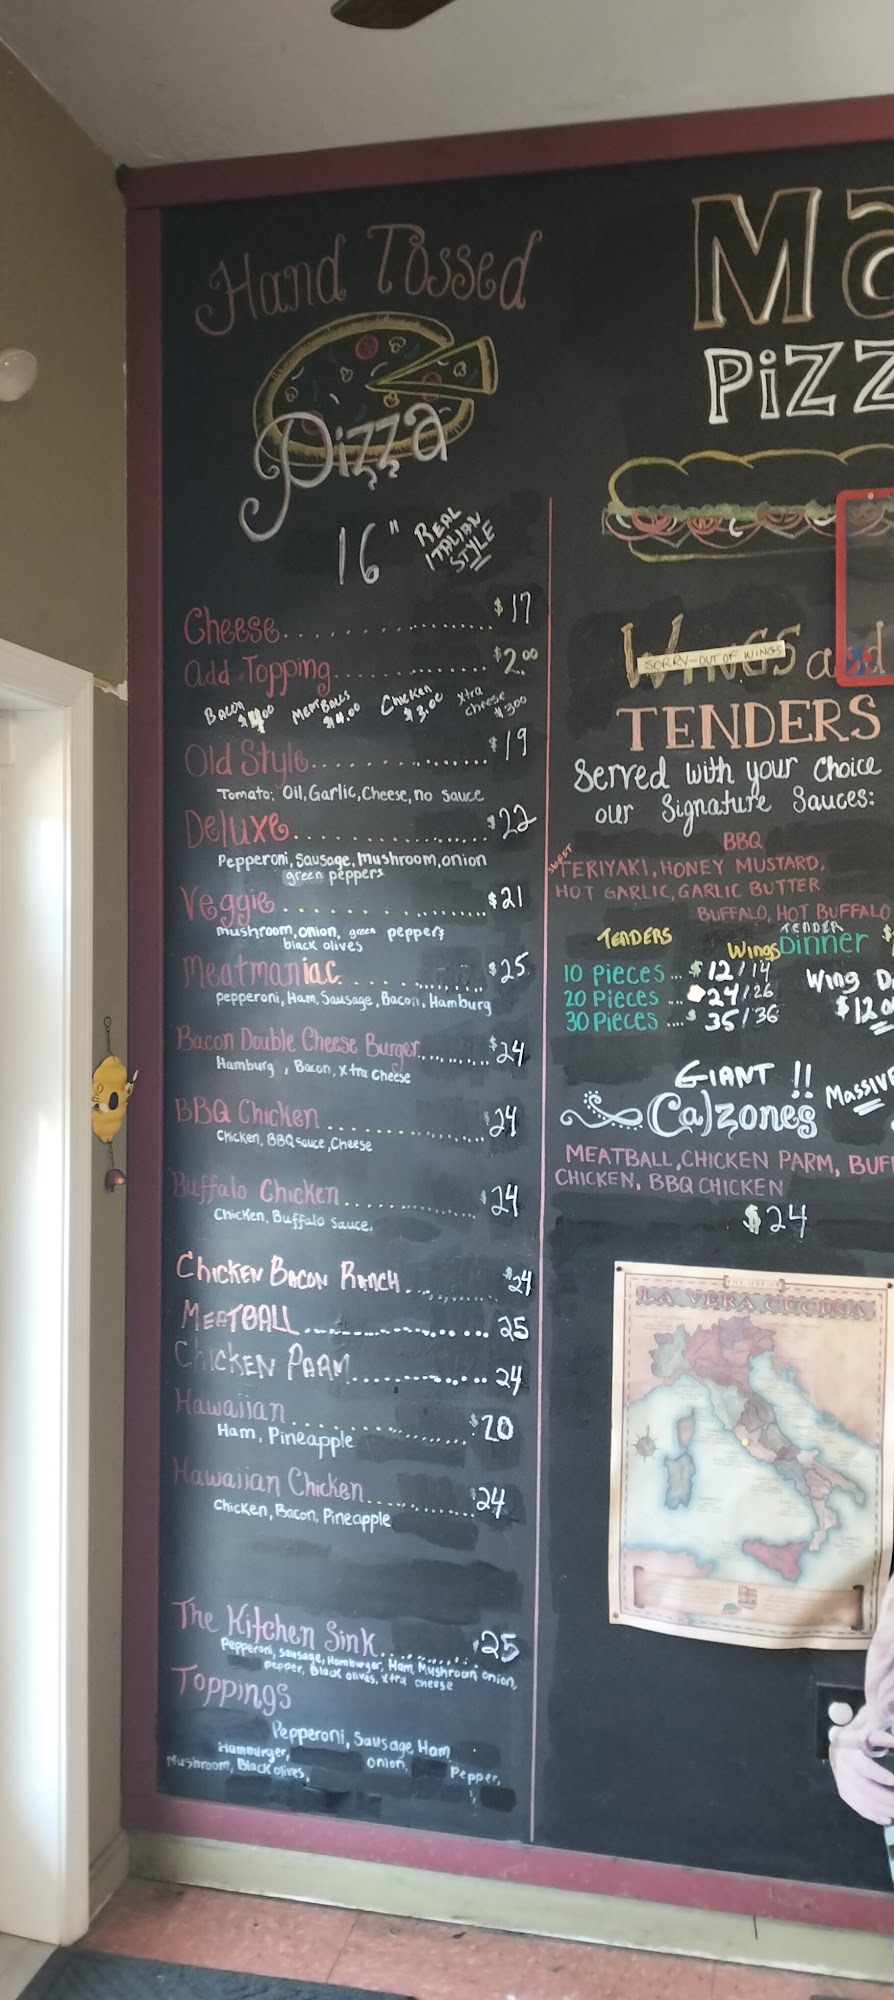 Hand Tossed
Pizza
16" REAL ITALIAN STYLE
Cheese $17
Add Topping $2.00
Bacon $4.00 MEATBALLS $4.00 Chicken $3.00 xtra cheese $3.00
Old Style $19
Tomato, Oil, Garlic, Cheese, no sauce
Deluxe $22
Pepperoni, Sausage, Mushroom, onion
green peppers
Veggie $21
mushroom, onion, green peppers
black olives
Meatmaniac $25
pepperoni, Ham, Sausage, Bacon, Hamburg
Bacon Double Cheese Burger $24
Hamburg, Bacon, xtra cheese
BBQ Chicken $24
Chicken, BBQ sauce, Cheese
Buffalo Chicken $24
Chicken, Buffalo Sauce.
CHICKEN BACON RANCH $24
MEATBALL 25
CHICKEN PARM 24
Hawaiian $20
Ham, Pineapple
Hawaiian Chicken $24
Chicken, Bacon, Pineapple
The Kitchen Sink $25
Pepperoni, Sausage, Hamburger, Ham, Mushroom onion,
pepper, Black olives, xtra cheese
Toppings
Pepperoni, Sausage, Ham
Hamburger, onion, Pepper,
Mushroom, Black olives,
Ma
PiZZ
WINGS and
SORRY-OUT OF WINGS
TENDERS
Served with your Choice
our Signature Sauces:
BBQ
SWEET TERIYAKI, HONEY MUSTARD,
HOT GARLIC, GARLIC BUTTER
BUFFALO, HOT BUFFALO
TENDERS Wings TENDER Dinner $
10 Pieces ... $12/14
20 Pieces ... 24/26
30 Pieces .... $35/36
Wing D
$12.0
GIANT !!
Calzones MASSIVE
MEATBALL, CHICKEN PARM, BUFF
CHICKEN, BBQ CHICKEN
$24
LA VERA CUCINA